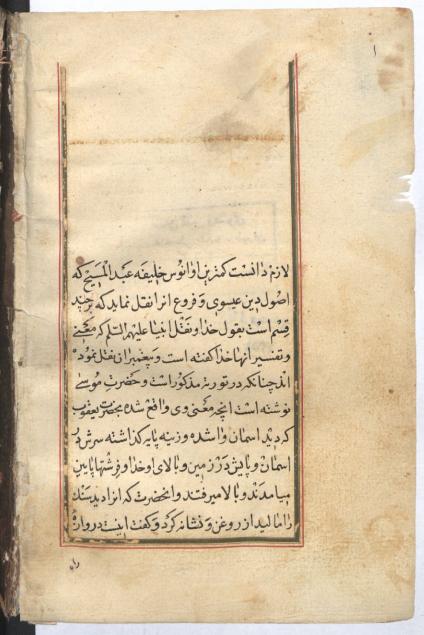 ۱
لازم دانست کمترین اوانوس خلیفه عبد المسیح که
اصول دین عیسوی و فروع انرا نقل نماید که بر چند
قسم است بقول خدا و نقل انبیا علیهم السلم که معنی
و تفسیر انها خدا گفته است و پیغمبران نقل نموده
اند چنانکه در توریة مذکور است و حضرت موسی
نوشته است انچه معنی وی واقع شده بحضرت یعقوب
که دید اسمان وا شده و زینه پایه گذاشته سرش در
اسمان و پایش در زمین و بالای او خدا و فرشتها پایین
میامدند و بالا میرفتند و انحضرت که انرا دید سنک
را مالید از روغن و نشانه کرد و گفت اینست دروازه